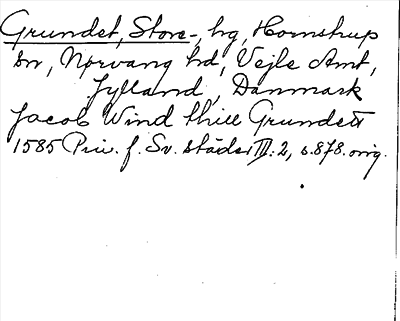 Grundet, Store-, hg, Hornstrup
sn, Nørvang hd, Vejle Amt,
Jylland, Danmark
Jacob Wind thill Grundett
1585 Priv. f. Sv. städer III:2, s.878.orig.